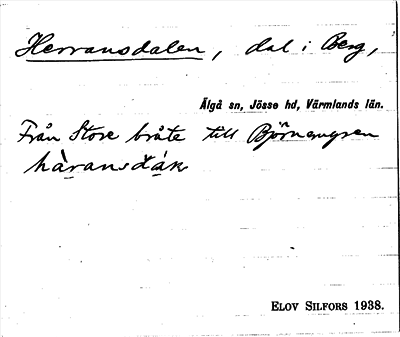 Herransdalen, dal i Berg,
Älgå sn, Jösse hd, Värmlands län.
Från Store bråte till Björnängen
hàransdák
ELOV SILFORS 1938.